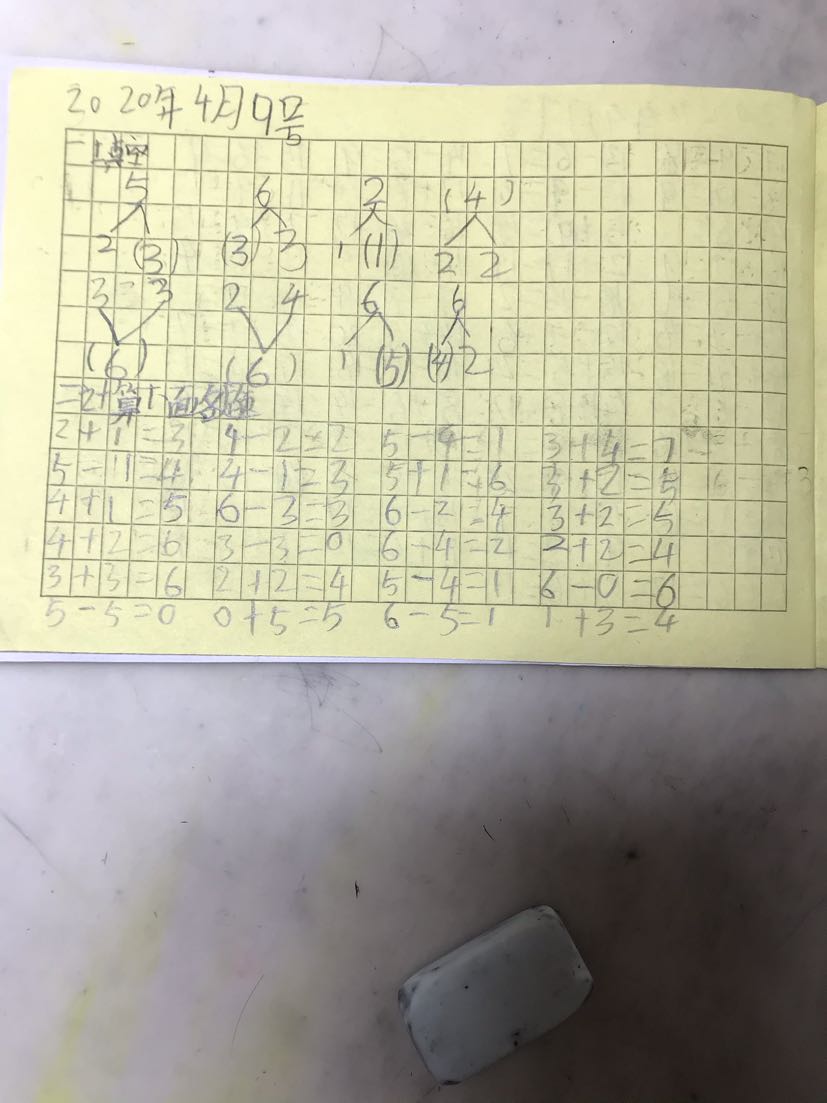 2020年4月9号
一 填空
5 6 2 (4)
2 (3) (3) 3 1 (1) 2 2
3 3 2 4 6 6
(6) (6) 1 (5) (4) 2
二 计算下面各题
2+1=3 4-2=2 5-4=1 3+4=7
5-1=4 4-1=3 5+1=6 3+2=5
4+1=5 6-3=3 6-2=4 3+2=5
4+2=6 3-3=0 6-4=2 2+2=4
3+3=6 2+2=4 5-4=1 6-0=6
5-5=0 0+5=5 6-5=1 1+3=4